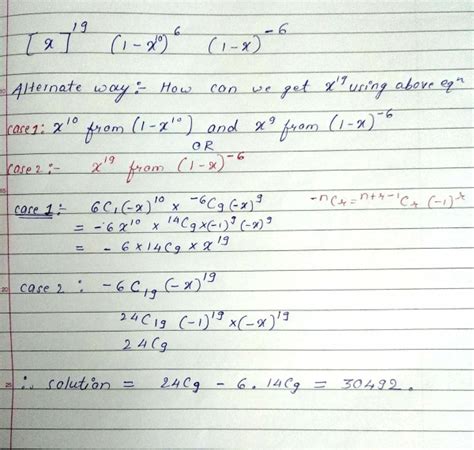 [x]^19 (1-x^10)^6 (1-x)^-6
Alternate way:- How can we get x^19 using above eq^n
case 1: x^10 from (1-x^10) and x^9 from (1-x)^-6
OR
case 2:- x^19 from (1-x)^-6
case 1:- 6C₁(-x)^10 × ^-6C9(-x)^9
^-nC_r = ^n+r-1C_r (-1)^r
= -6x^10 × ^14C9×(-1)^9(-x)^9
= - 6 × 14C9 × x^19
case 2 : -6C₁₉(-x)^19
24C₁₉ (-1)^19 ×(-x)^19
24C9
∴ solution = 24C9 - 6.14C9 = 30492.